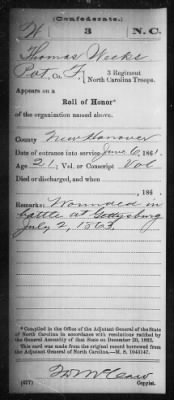 (Confederate.)
W 3 N.C.
Thomas Weeks
Pvt, Co. F, 3 Regiment
North Carolina Troops.
Appears on a
Roll of Honor*
of the organization named above.
County New Hanover
Date of entrance into service June 6, 1861.
Age 21; Vol. or Conscript Vol
Died or discharged, and when
, 186 .
Remarks: Wounded in
battle at Gettysburg
July 2, 1863.
*Compiled in the Office of the Adjutant General of the State
of North Carolina in accordance with resolutions ratified by
the General Assembly of that State on December 20, 1862.
This card was made from the original record borrowed from
the Adjutant General of North Carolina.—M. S. 1941147.
(677) Copyist.